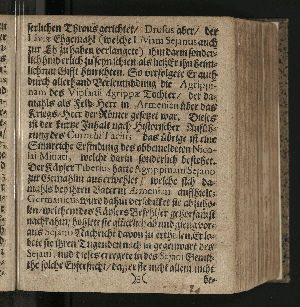 serlichen Throns gerichtet/ Drusus aber/ der
Livie Ehgemahl (welche L. Ælium Sejanus auch
zur Eh zu haben verlangete) ihm darin
hinderlich zu seyn schien als heß er ihn heim-
lich mit Gifft hinrichten. So verfolgete Er auch
durch allerhand Verleumbdung die Agrippi-
nam des Vipsanii Agrippæ Tochter/ der da-
mahls als Feld-Herr in Armenien über das
Kriegs-Heer der Römer gesetzet war. Dieses
ist der kurtze Inhalt nach Historischer Anfüh-
rung des Cornelii Taciti: das übrige ist eine
Sinnreiche Erfindung des obbemeldten Nico-
lai Minati, welche darin sonderlich bestehet.
Der Käyser Tiberius hatte Agrippinam Sejano
zur Gemahlin auserwehlet/ welche sich da-
mahls bey ihrem Vater in Armenien auffhielt:
Germanicus wurd dahin verschicket sie abzuho-
len/ welchem des Käysers Befehl er gehorsamst
nachkahm/ hohlete sie glücklich ab und gieng vor-
aus Sejano Nachricht davon zu ertheilen. Er lo-
bete sie ihren Tugenden nach in gegenwart des
Sejani, und dieses erregete in des Sejani Gemüth-
the solche Eyfersucht/ daß er sie nicht allein nicht
be-